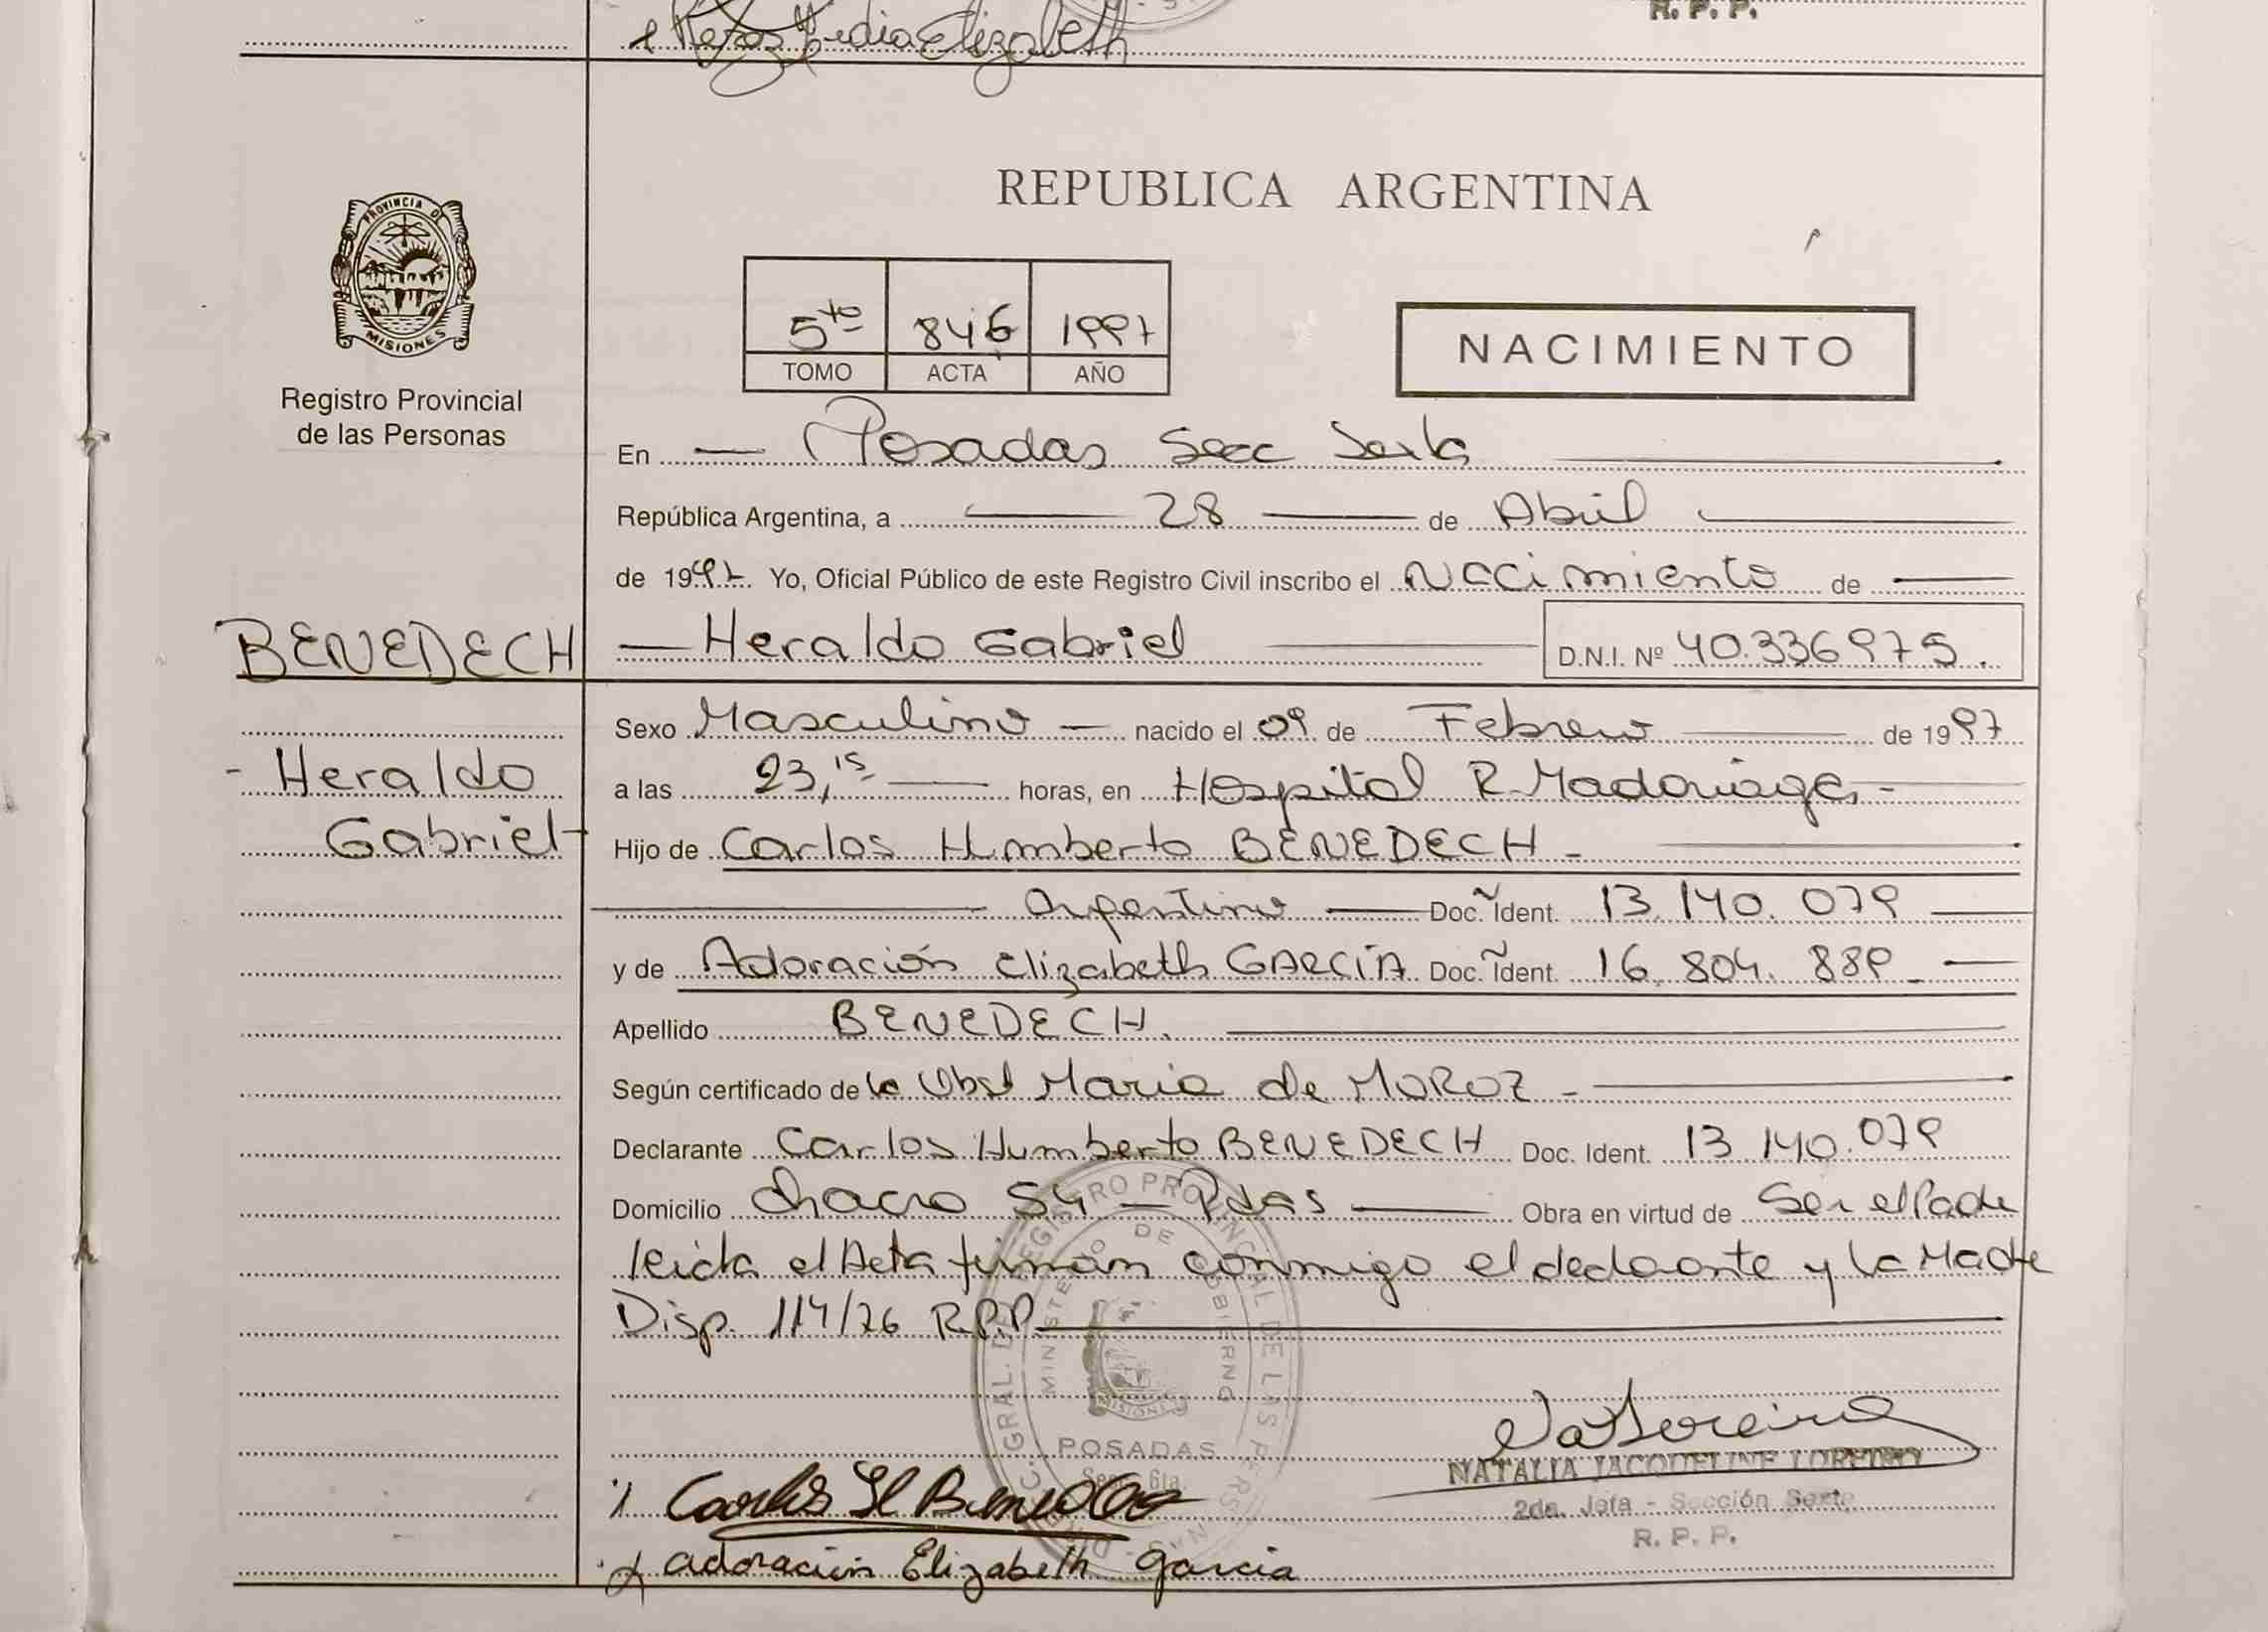 Elizabeth
R. P. P.
PROVINCIA DE
MISIONES
Registro Provincial
de las Personas
REPUBLICA ARGENTINA
5to 846 1997
TOMO ACTA AÑO
NACIMIENTO
En Posadas Secc Sexta
República Argentina, a 28 de Abril
de 1997 Yo, Oficial Público de este Registro Civil inscribo el Nacimiento de
BENEDECH Heraldo Gabriel D.N.I. Nº 40.336975.
Sexo Masculino nacido el 09 de Febrero de 1997
Heraldo
a las 23,15 horas, en Hospital R. Madariaga
Gabriel
Hijo de Carlos Humberto BENEDECH
Argentino Doc. Ident. 13.140.079
y de Adoración Elizabeth GARCÍA Doc. Ident. 16.804.889
Apellido BENEDECH.
Según certificado de la Obst Maria de MOROZ
Declarante Carlos Humberto BENEDECH Doc. Ident. 13.140.079
Domicilio Chacra 54 - Pdas Obra en virtud de Ser el Padre
leida el Acta firman conmigo el declarante y la Madre
Disp. 114/76 R.P.P.
MINISTERIO DE GOBIERNO
MISIONES
POSADAS
Secc. 6ta
NATALIA JACQUELINE LOREIRO
2da. Jefa - Sección Sexta
R. P. P.
Carlos H Benedech
Adoración Elizabeth Garcia